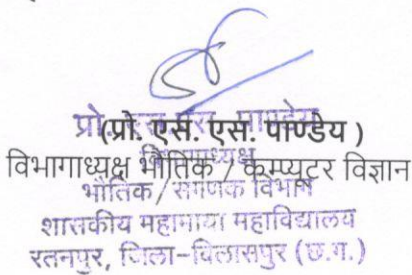 (प्रो. एस. एस. पाण्डेय )
विभागाध्यक्ष भौतिक / कम्प्यूटर विज्ञान
भौतिक/संगणक विभाग
शासकीय महामाया महाविद्यालय
रतनपुर, जिला-बिलासपुर (छ.ग.)